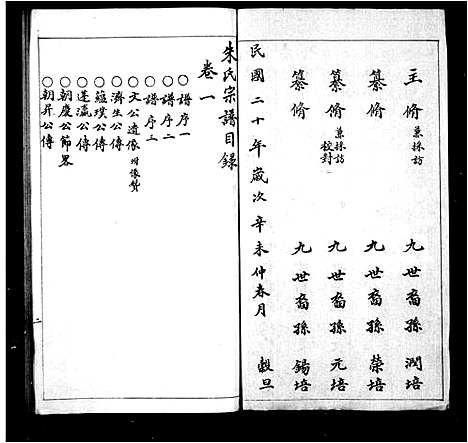 主脩 兼採訪 九世裔孫 潤培
纂脩 九世裔孫 榮培
纂脩 兼採訪校對 九世裔孫 元培
纂脩 九世裔孫 錫培
民國二十年歲次辛未仲春月 穀旦
朱氏宗譜目錄
卷一
○譜序一
○譜序二
○譜序三
○文公遺像 附像贊
○濟生公傳
○蘊璞公傳
○蓬瀛公傳
○朝慶公節畧
○朝昇公傳